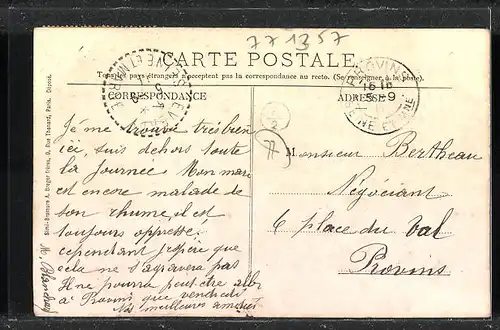 771357
CARTE POSTALE
Tous les pays étrangers n'acceptent pas la correspondance au recto. (Se renseigner à la poste).
CORRESPONDANCE
ADRESSE
PROVINS
SEINE ET MARNE
Je me trouve très bien
ici, suis dehors toute
la journée Mon mari
est encore malade de
son rhume, il est
toujours oppressé.
cependant j'espère que
cela ne s'agravera pas
Il ne pourra peut être aller
à Provins que vendredi
Nos meilleures amitiés
77
Monsieur Bertheau
Négociant
6 place du Val
Provins
Simi-Bromure A. Breger frères, 9, Rue Thénard, Paris. Déposé.